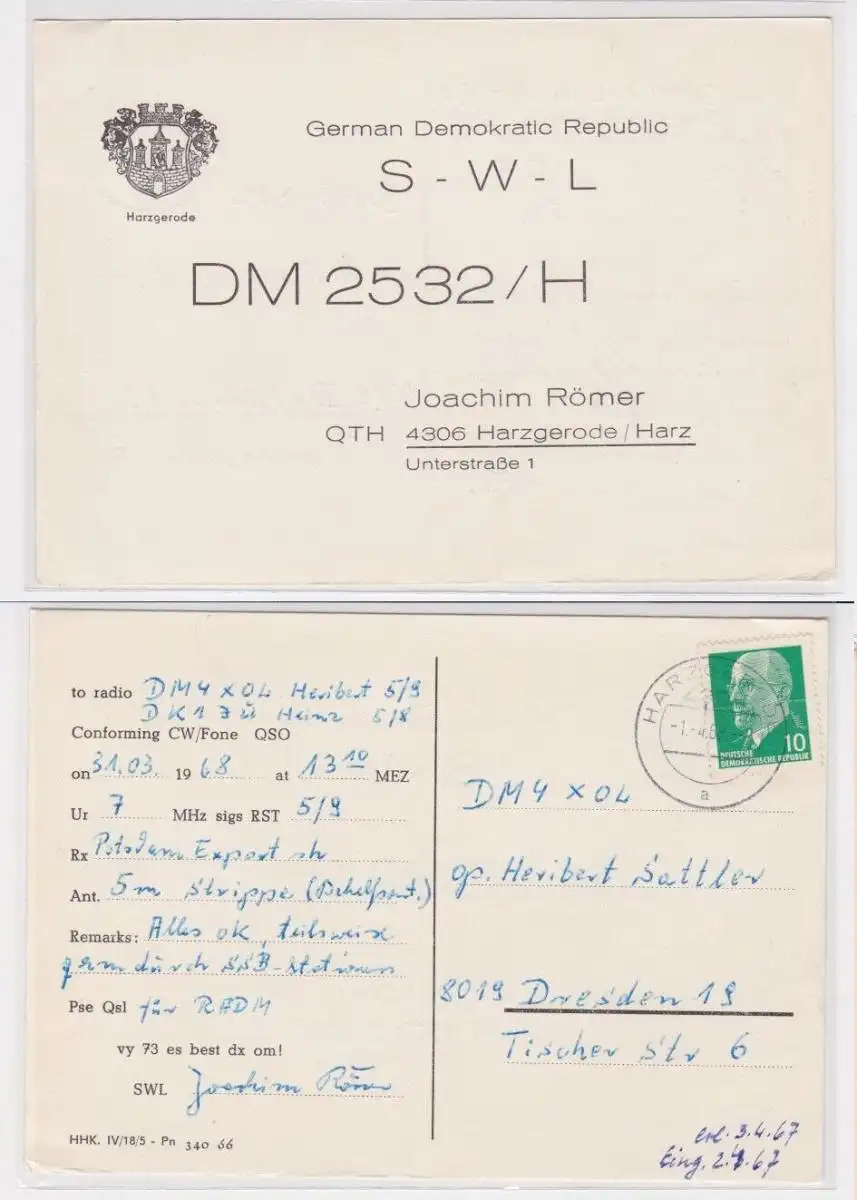 Harzgerode
German Demokratic Republic
S - W - L
DM 2532/H
Joachim Römer
QTH 4306 Harzgerode/Harz
Unterstraße 1
to radio DM4XOL Heribert 5/9
Heinz 5/8
Conforming CW/Fone QSO
on 31.03. 1968 at 13 10 MEZ
Ur 7 MHz sigs RST 5/9
Rx Potsdam Export
Ant. 5m Strippe (Behelfsant.)
Remarks: Alles ok, teilsweise
qrm durch SSB-Stationen
Pse Qsl für RADM
vy 73 es best dx om!
SWL Joachim Römer
HHK. IV/18/5 - Pn 340 66
a
DEUTSCHE
DEMOKRATISCHE REPUBLIK
10
DM4XOL
op. Heribert Sattler
8019 Dresden 19
Tischer Str 6
erl. 3.4.67
Eing. 2.4.67